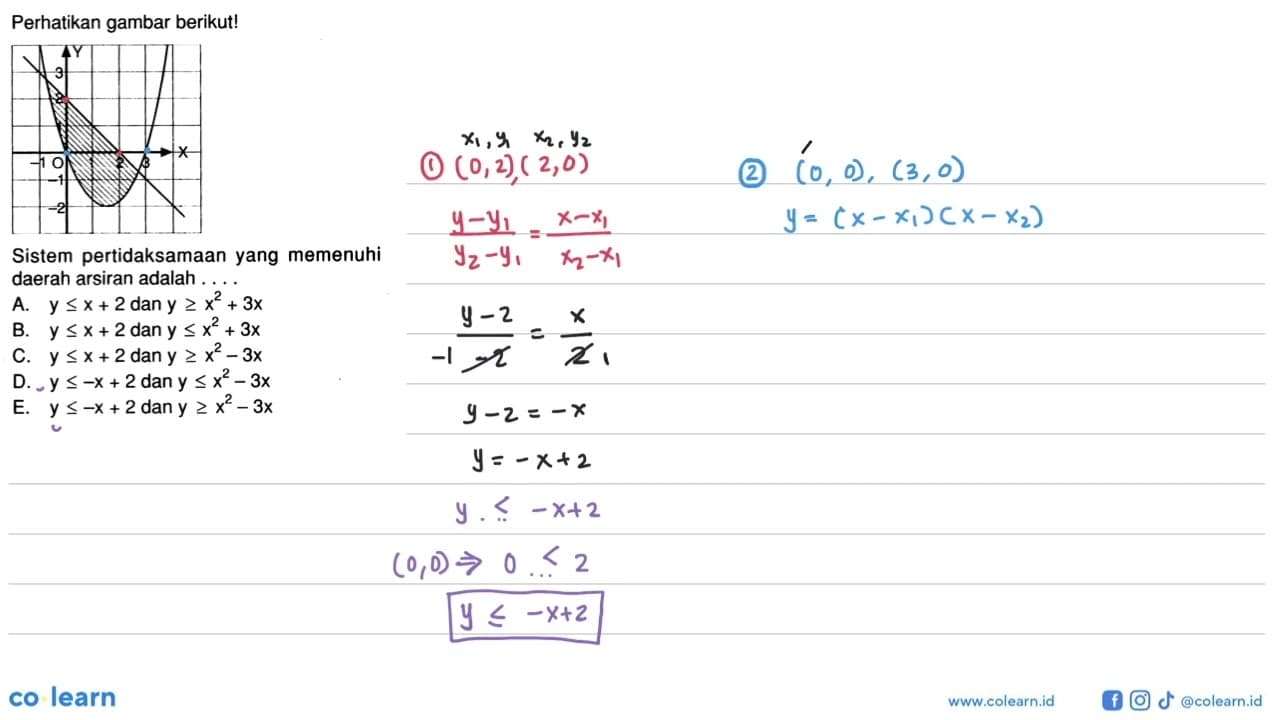 Perhatikan gambar berikut!
Y
3
2
-1 O 1 2 3 X
-1
-2
Sistem pertidaksamaan yang memenuhi
daerah arsiran adalah . . . .
A. y ≤ x + 2 dan y ≥ x² + 3x
B. y ≤ x + 2 dan y ≤ x² + 3x
C. y ≤ x + 2 dan y ≥ x² – 3x
D. y ≤ –x + 2 dan y ≤ x² – 3x
E. y ≤ –x + 2 dan y ≥ x² – 3x
x₁, y₁ x₂, y₂
① (0, 2), (2, 0)
y - y₁ / y₂ - y₁ = x - x₁ / x₂ - x₁
y - 2 / -2 = x / 2
-1 1
y - 2 = -x
y = -x + 2
y . ≤ .. -x + 2
(0, 0) ⇒ 0 ... < 2
y ≤ -x + 2
② (0, 0), (3, 0)
y = (x - x₁)(x - x₂)
co learn
www.colearn.id
@colearn.id